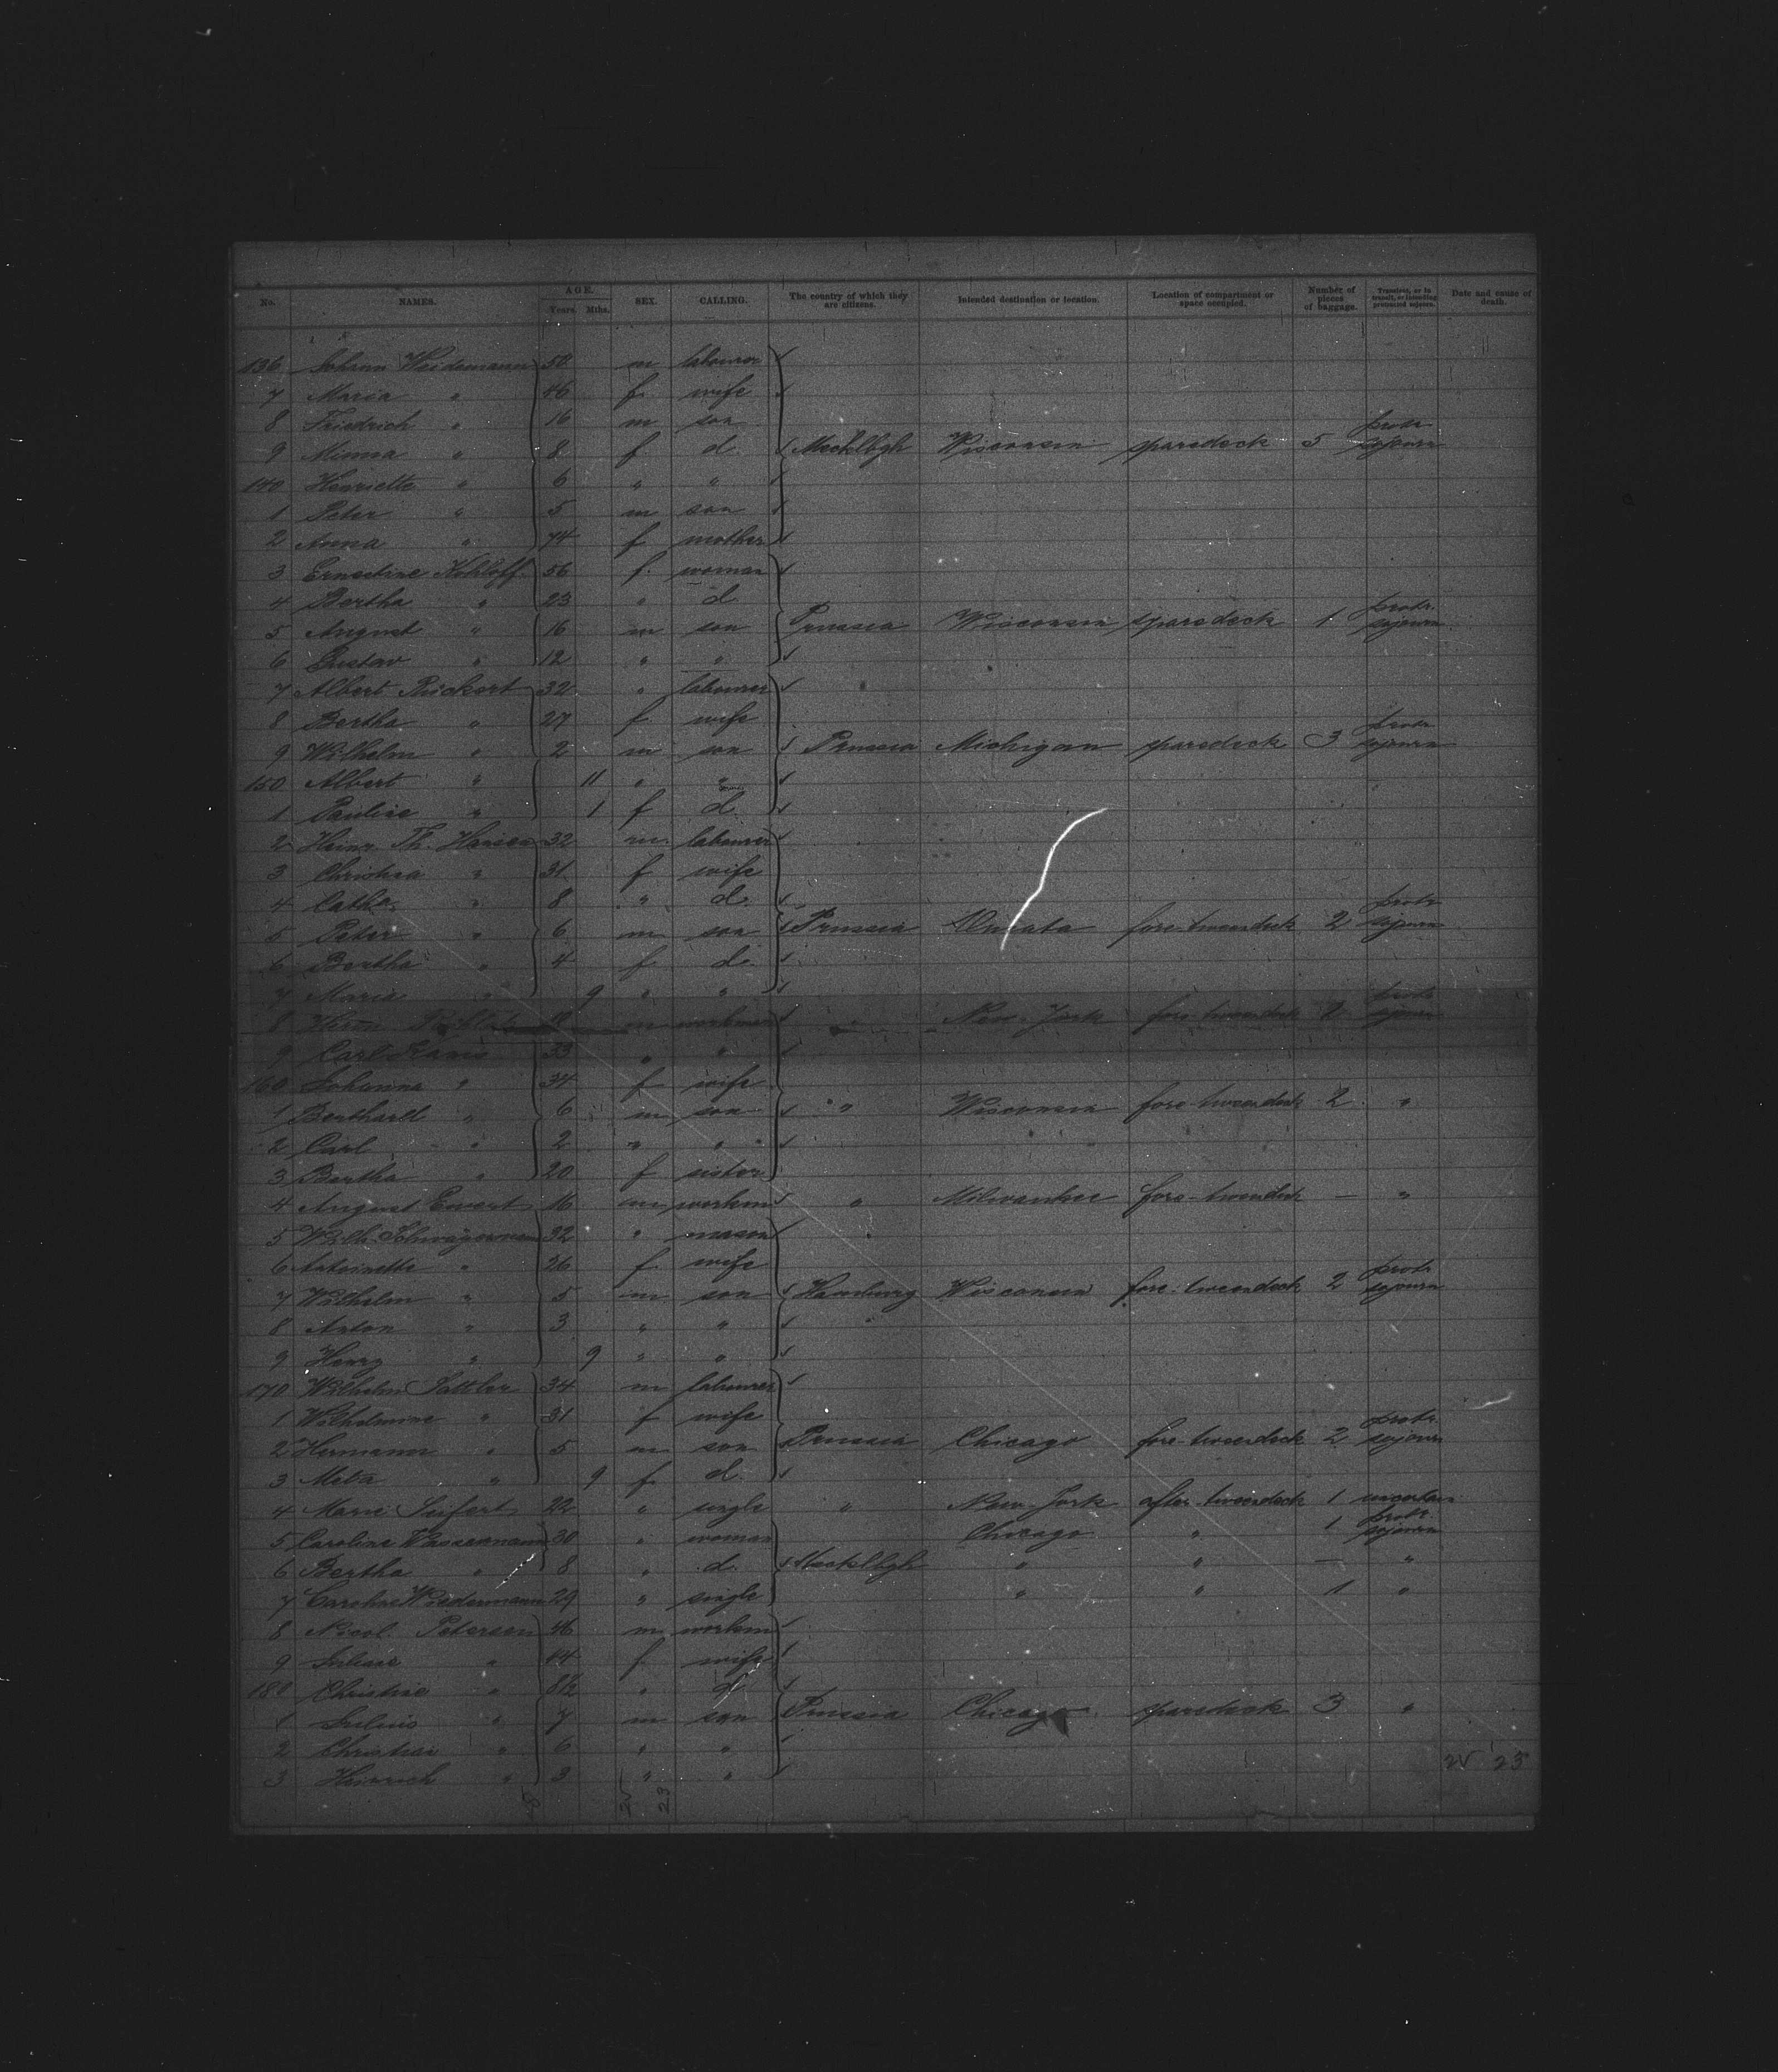 No. NAMES. AGE. Years Mths. SEX. CALLING. The country of which they are citizens. Intended destination or location. Location of compartment or space occupied. Number of pieces of baggage. Transient, or in transit, or intending protracted sojourn. Date and cause of death.
136 Johann Weidemann 50 m labourer
7 Maria " 46 f wife
8 Friedrich " 16 m son
9 Minna " 8 f d. Mecklbgh Wisconsin sparedeck 5 protr. sojourn
140 Henriette " 6 " "
1 Peter " 5 m son
2 Anna " 74 f mother
3 Ernestine Kohloff 56 f. woman
4 Bertha " 23 " d
5 August " 16 m son Prussia Wisconsin sparedeck 1 protr. sojourn
6 Gustav " 12 " "
7 Albert Rickert 32 " labourer
8 Bertha " 27 f wife
9 Wilhelm " 2 m son Prussia Michigan sparedeck 3 protr. sojourn
150 Albert " 11 " "
1 Pauline " 1 f d.
2 Heinr. Th. Hansen 32 m labourer
3 Christina " 31 f wife
4 Catha. " 8 " d.
5 Peter " 6 m son Prussia fore-tweendeck 2 protr. sojourn
6 Bertha " 4 f d.
7 Maria " 9 " "
8 m workman " New-York fore-tweendeck 2 protr. sojourn
9 Carl 33 " "
160 Johanna " 34 f wife
1 " 6 m son " Wisconsin fore-tweendeck 2 "
2 Carl " 2 " "
3 Bertha " 20 f sister
4 August Ewert 16 m workm " Milwaukee fore-tweendeck — "
5 Wilh. Schwägermann 32 " mason
6 Antoinette " 26 f wife
7 Wilhelm " 5 m son Hamburg Wisconsin fore-tweendeck 2 protr. sojourn
8 Anton " 3 " "
9 Henry " 9 " "
170 Wilhelm Sattler 34 m labourer
1 Wilhelmine " 31 f wife
2 Hermann " 5 m son Prussia Chicago fore-tweendeck 2 protr. sojourn
3 Meta " 9 f. d.
4 Marie Seifert 22 " single " New-York after-tweendeck 1 uncertain
5 Caroline Wassermann 30 " woman Chicago " 1 protr. sojourn
6 Bertha " 8 " d. Mecklbgh " " — "
7 Caroline Wiedermann 29 " single " " 1 "
8 Nicol. Petersen 46 m workm
9 Juliane " 44 f wife
180 Christine " 8½ " d
1 Julius " 7 m son Prussia Chicago sparedeck 3 "
2 Christian " 6 " "
3 Heinrich " 3 " "
25 23